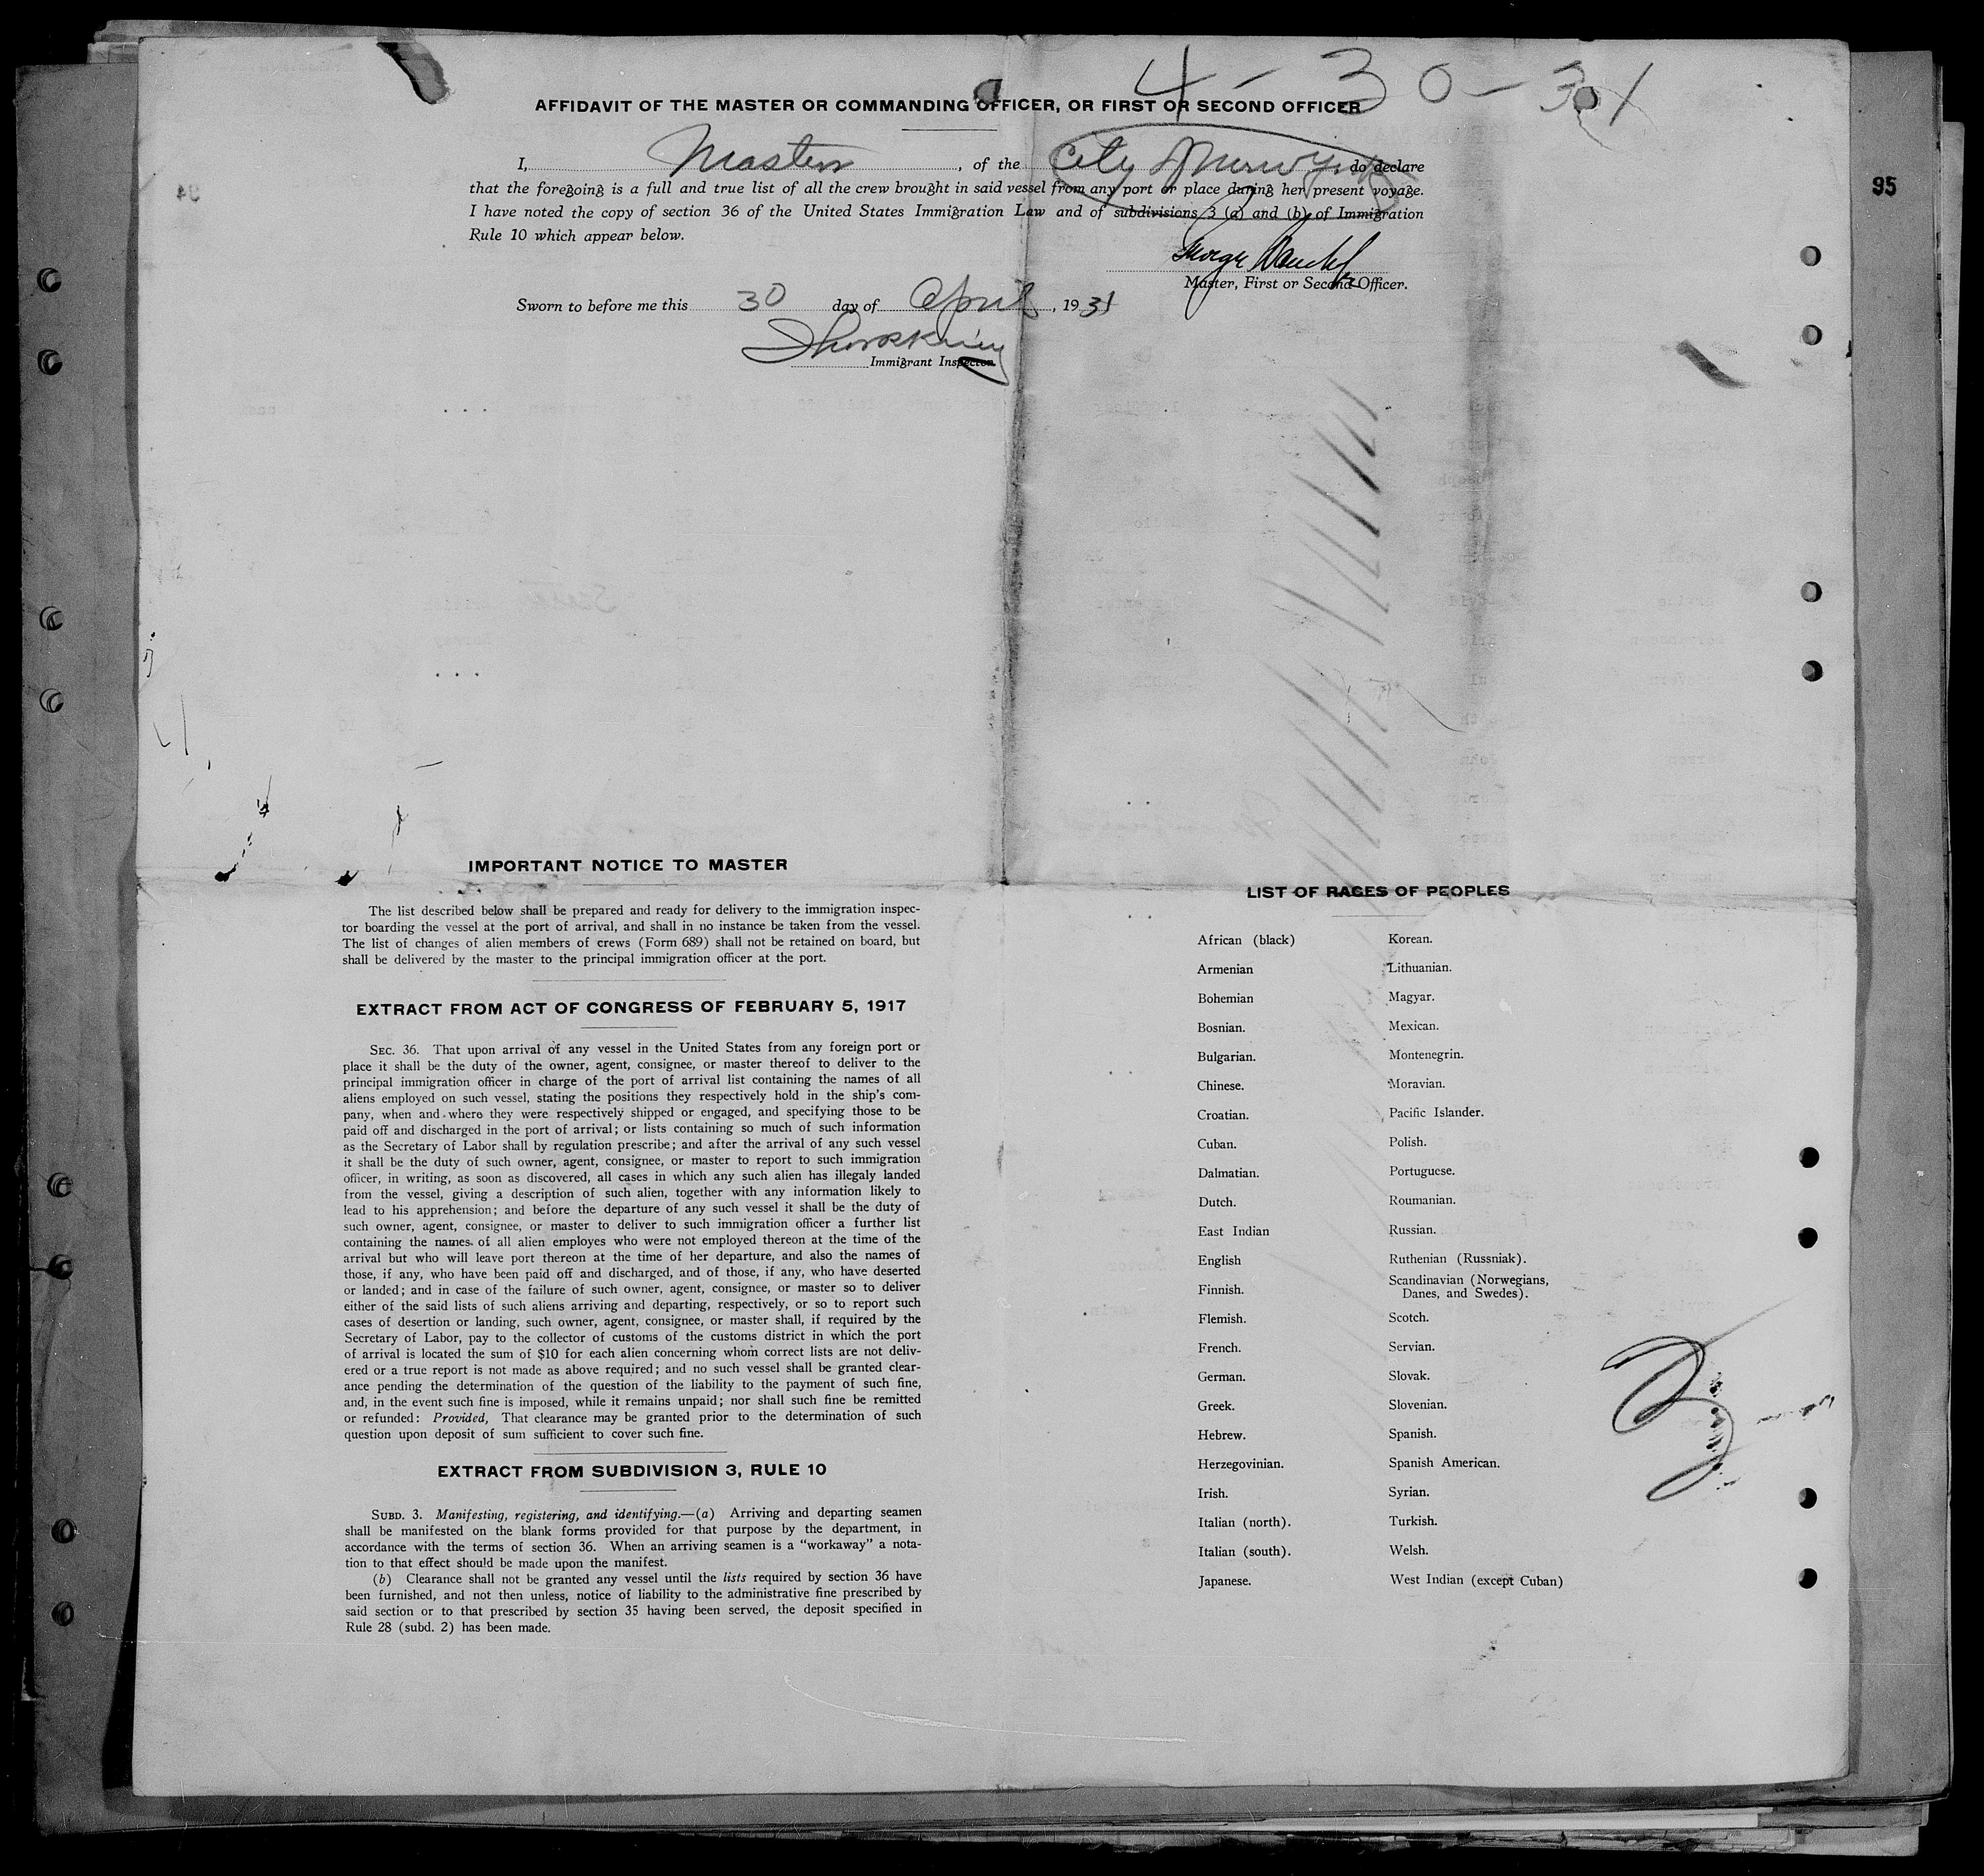 4-30-31
AFFIDAVIT OF THE MASTER OR COMMANDING OFFICER, OR FIRST OR SECOND OFFICER
I, Master, of the City of New York do declare
that the foregoing is a full and true list of all the crew brought in said vessel from any port or place during her present voyage.
I have noted the copy of section 36 of the United States Immigration Law and of subdivisions 3 (a) and (b) of Immigration
Rule 10 which appear below.
George
Master, First or Second Officer.
Sworn to before me this 30 day of April, 1931
Immigrant Inspector.
95
94
IMPORTANT NOTICE TO MASTER
The list described below shall be prepared and ready for delivery to the immigration inspec-
tor boarding the vessel at the port of arrival, and shall in no instance be taken from the vessel.
The list of changes of alien members of crews (Form 689) shall not be retained on board, but
shall be delivered by the master to the principal immigration officer at the port.
EXTRACT FROM ACT OF CONGRESS OF FEBRUARY 5, 1917
SEC. 36. That upon arrival of any vessel in the United States from any foreign port or
place it shall be the duty of the owner, agent, consignee, or master thereof to deliver to the
principal immigration officer in charge of the port of arrival list containing the names of all
aliens employed on such vessel, stating the positions they respectively hold in the ship's com-
pany, when and where they were respectively shipped or engaged, and specifying those to be
paid off and discharged in the port of arrival; or lists containing so much of such information
as the Secretary of Labor shall by regulation prescribe; and after the arrival of any such vessel
it shall be the duty of such owner, agent, consignee, or master to report to such immigration
officer, in writing, as soon as discovered, all cases in which any such alien has illegaly landed
from the vessel, giving a description of such alien, together with any information likely to
lead to his apprehension; and before the departure of any such vessel it shall be the duty of
such owner, agent, consignee, or master to deliver to such immigration officer a further list
containing the names of all alien employes who were not employed thereon at the time of the
arrival but who will leave port thereon at the time of her departure, and also the names of
those, if any, who have been paid off and discharged, and of those, if any, who have deserted
or landed; and in case of the failure of such owner, agent, consignee, or master so to deliver
either of the said lists of such aliens arriving and departing, respectively, or so to report such
cases of desertion or landing, such owner, agent, consignee, or master shall, if required by the
Secretary of Labor, pay to the collector of customs of the customs district in which the port
of arrival is located the sum of $10 for each alien concerning whom correct lists are not deliv-
ered or a true report is not made as above required; and no such vessel shall be granted clear-
ance pending the determination of the question of the liability to the payment of such fine,
and, in the event such fine is imposed, while it remains unpaid; nor shall such fine be remitted
or refunded: Provided, That clearance may be granted prior to the determination of such
question upon deposit of sum sufficient to cover such fine.
EXTRACT FROM SUBDIVISION 3, RULE 10
SUBD. 3. Manifesting, registering, and identifying.—(a) Arriving and departing seamen
shall be manifested on the blank forms provided for that purpose by the department, in
accordance with the terms of section 36. When an arriving seamen is a "workaway" a nota-
tion to that effect should be made upon the manifest.
(b) Clearance shall not be granted any vessel until the lists required by section 36 have
been furnished, and not then unless, notice of liability to the administrative fine prescribed by
said section or to that prescribed by section 35 having been served, the deposit specified in
Rule 28 (subd. 2) has been made.
LIST OF RACES OF PEOPLES
African (black)
Armenian
Bohemian
Bosnian.
Bulgarian.
Chinese.
Croatian.
Cuban.
Dalmatian.
Dutch.
East Indian
English
Finnish.
Flemish.
French.
German.
Greek.
Hebrew.
Herzegovinian.
Irish.
Italian (north).
Italian (south).
Japanese.
Korean.
Lithuanian.
Magyar.
Mexican.
Montenegrin.
Moravian.
Pacific Islander.
Polish.
Portuguese.
Roumanian.
Russian.
Ruthenian (Russniak).
Scandinavian (Norwegians,
Danes, and Swedes).
Scotch.
Servian.
Slovak.
Slovenian.
Spanish.
Spanish American.
Syrian.
Turkish.
Welsh.
West Indian (except Cuban)